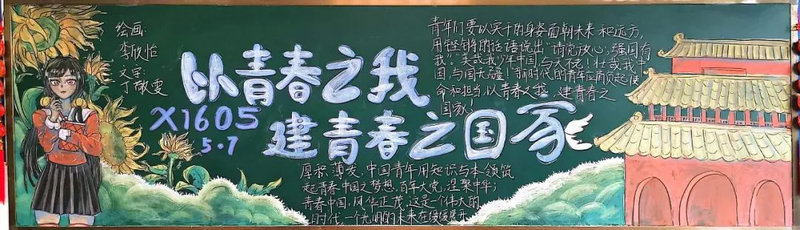 绘画:
李欣怡
文字:
丁敬雯
以青春之我
X1605
5.7
建青春之国家
青年们要以实干的身姿面朝未来和远方,
用铿锵的话语说出"请党放心,强国有
我"。美哉我少年中国,与天不老!壮哉我中
国,与国无疆!新时代的青年应肩负起使
命和担当,以青春之我,建青春之
国家!
厚积薄发,中国青年用知识与本领筑
起青春中国之梦想,百年大党,泽聚中华;
青春中国,风华正茂,这是一个伟大的
时代,一个光明的未来在徐徐展开